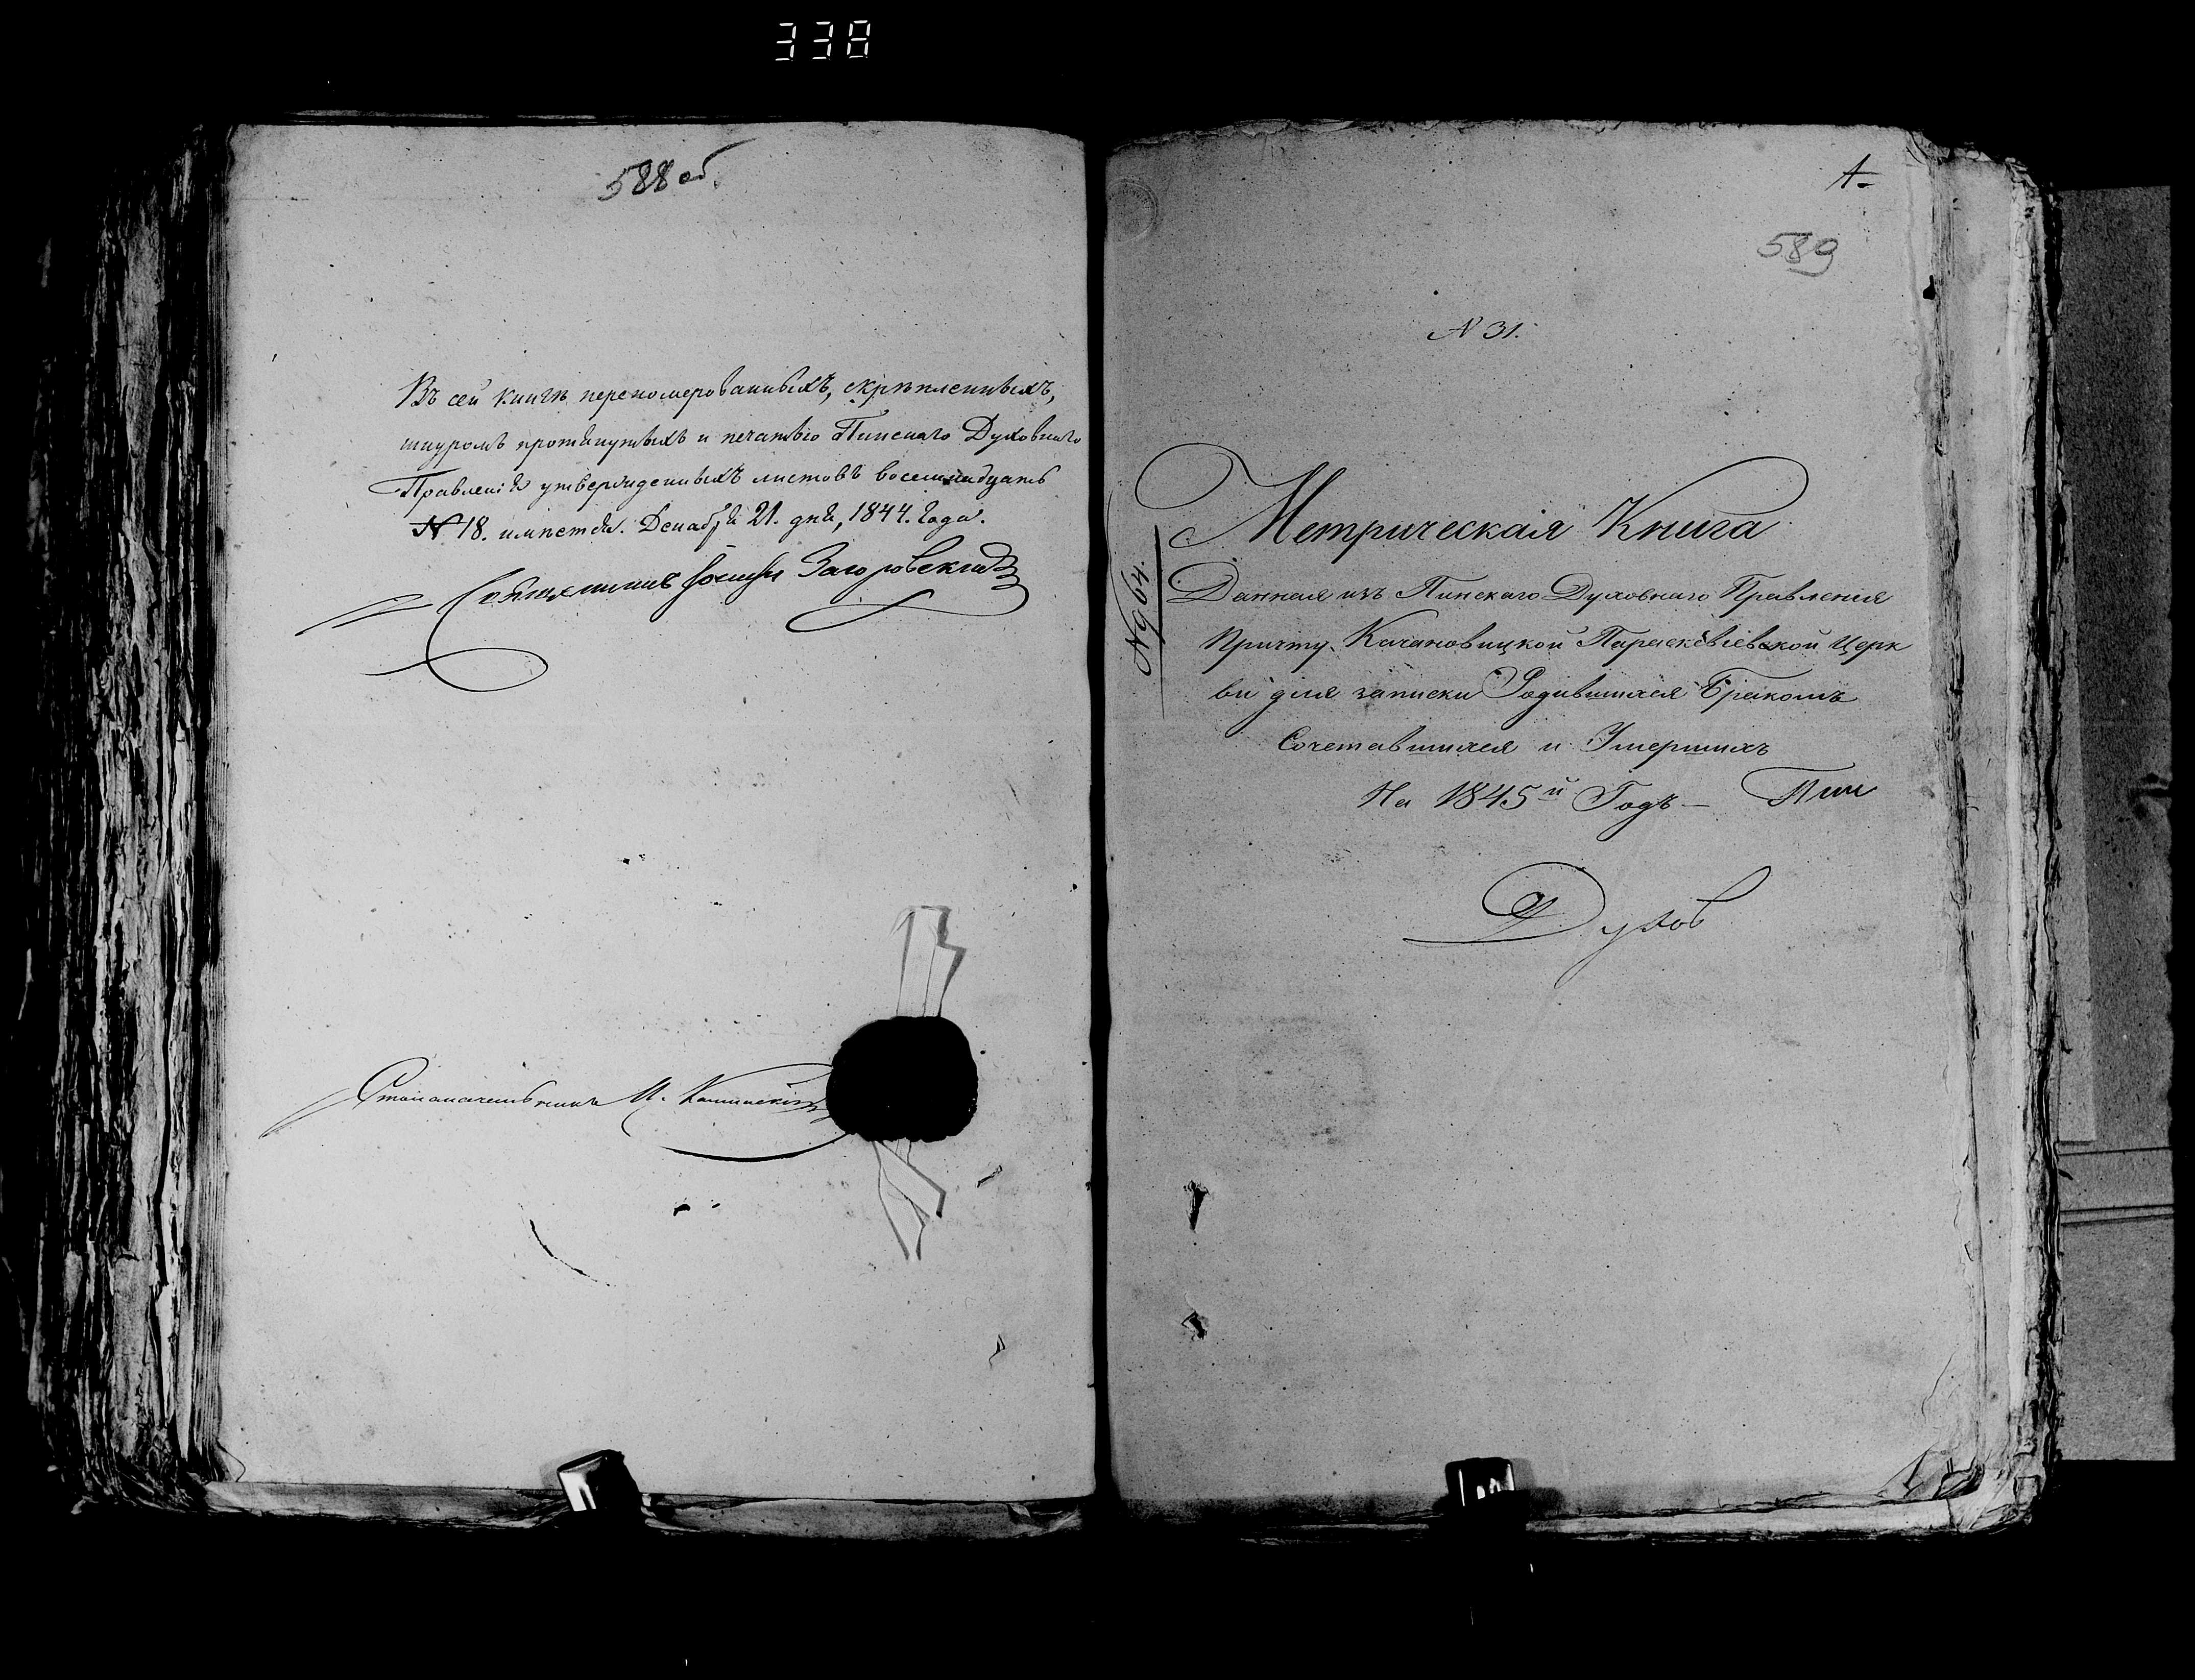 338
588 об.
Въ сей книгѣ перономерованныхъ, скрѣпленныхъ,
шнуромъ протянутыхъ и печатью Пинскаго Духовнаго
Правленія утвержденныхъ листовъ восемнадцать
№ 18. имѣется. Декабря 21. дня, 1844. Года.
Священникъ Іоаннъ Загоровскій
Столоначальникъ И.
1.
589
№ 31.
№ 964.
Метрическая Книга
Данная изъ Пинскаго Духовнаго Правленія
Причту Качановицкой Параскевіевской Церк
ви для записки Родившихся Бракомъ
Сочетавшихся и Умершихъ
На 1845й Годъ — Пин
Духов